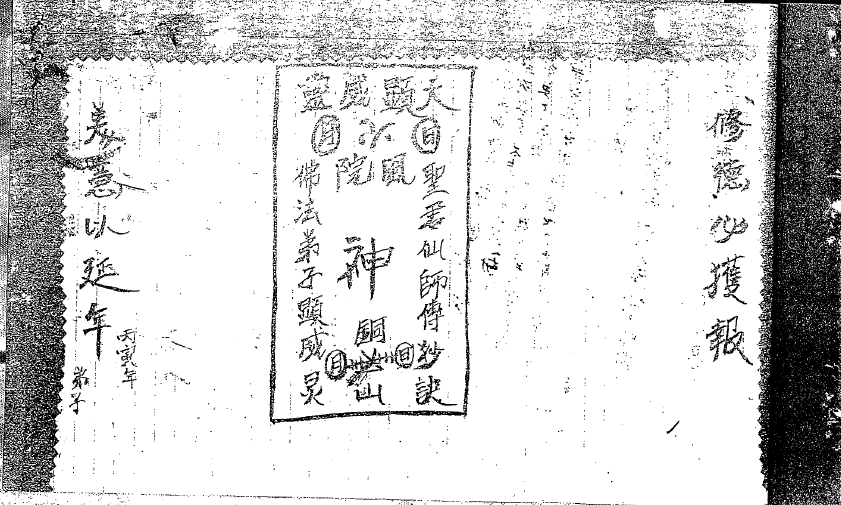 修德必獲報
天顯威靈
日 日
風院
聖君仙師傳妙訣
神
佛法弟子顯威灵
日 日
仙
美意以延年
丙寅年
弟子